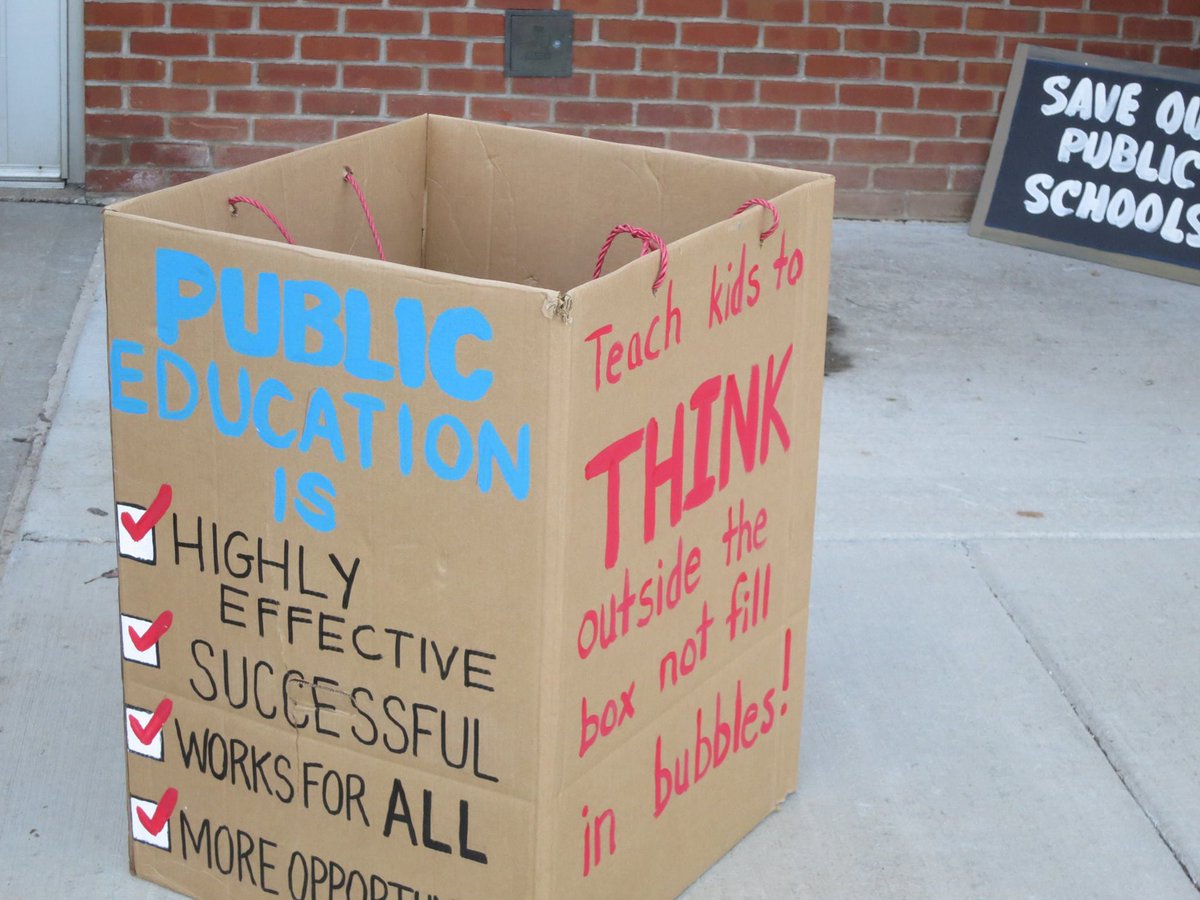 PUBLIC
EDUCATION
IS
HIGHLY
EFFECTIVE
SUCCESSFUL
WORKS FOR ALL
MORE
Teach kids to
THINK
outside the
box not fill
in bubbles!
SAVE
PUBLIC
SCHOOLS